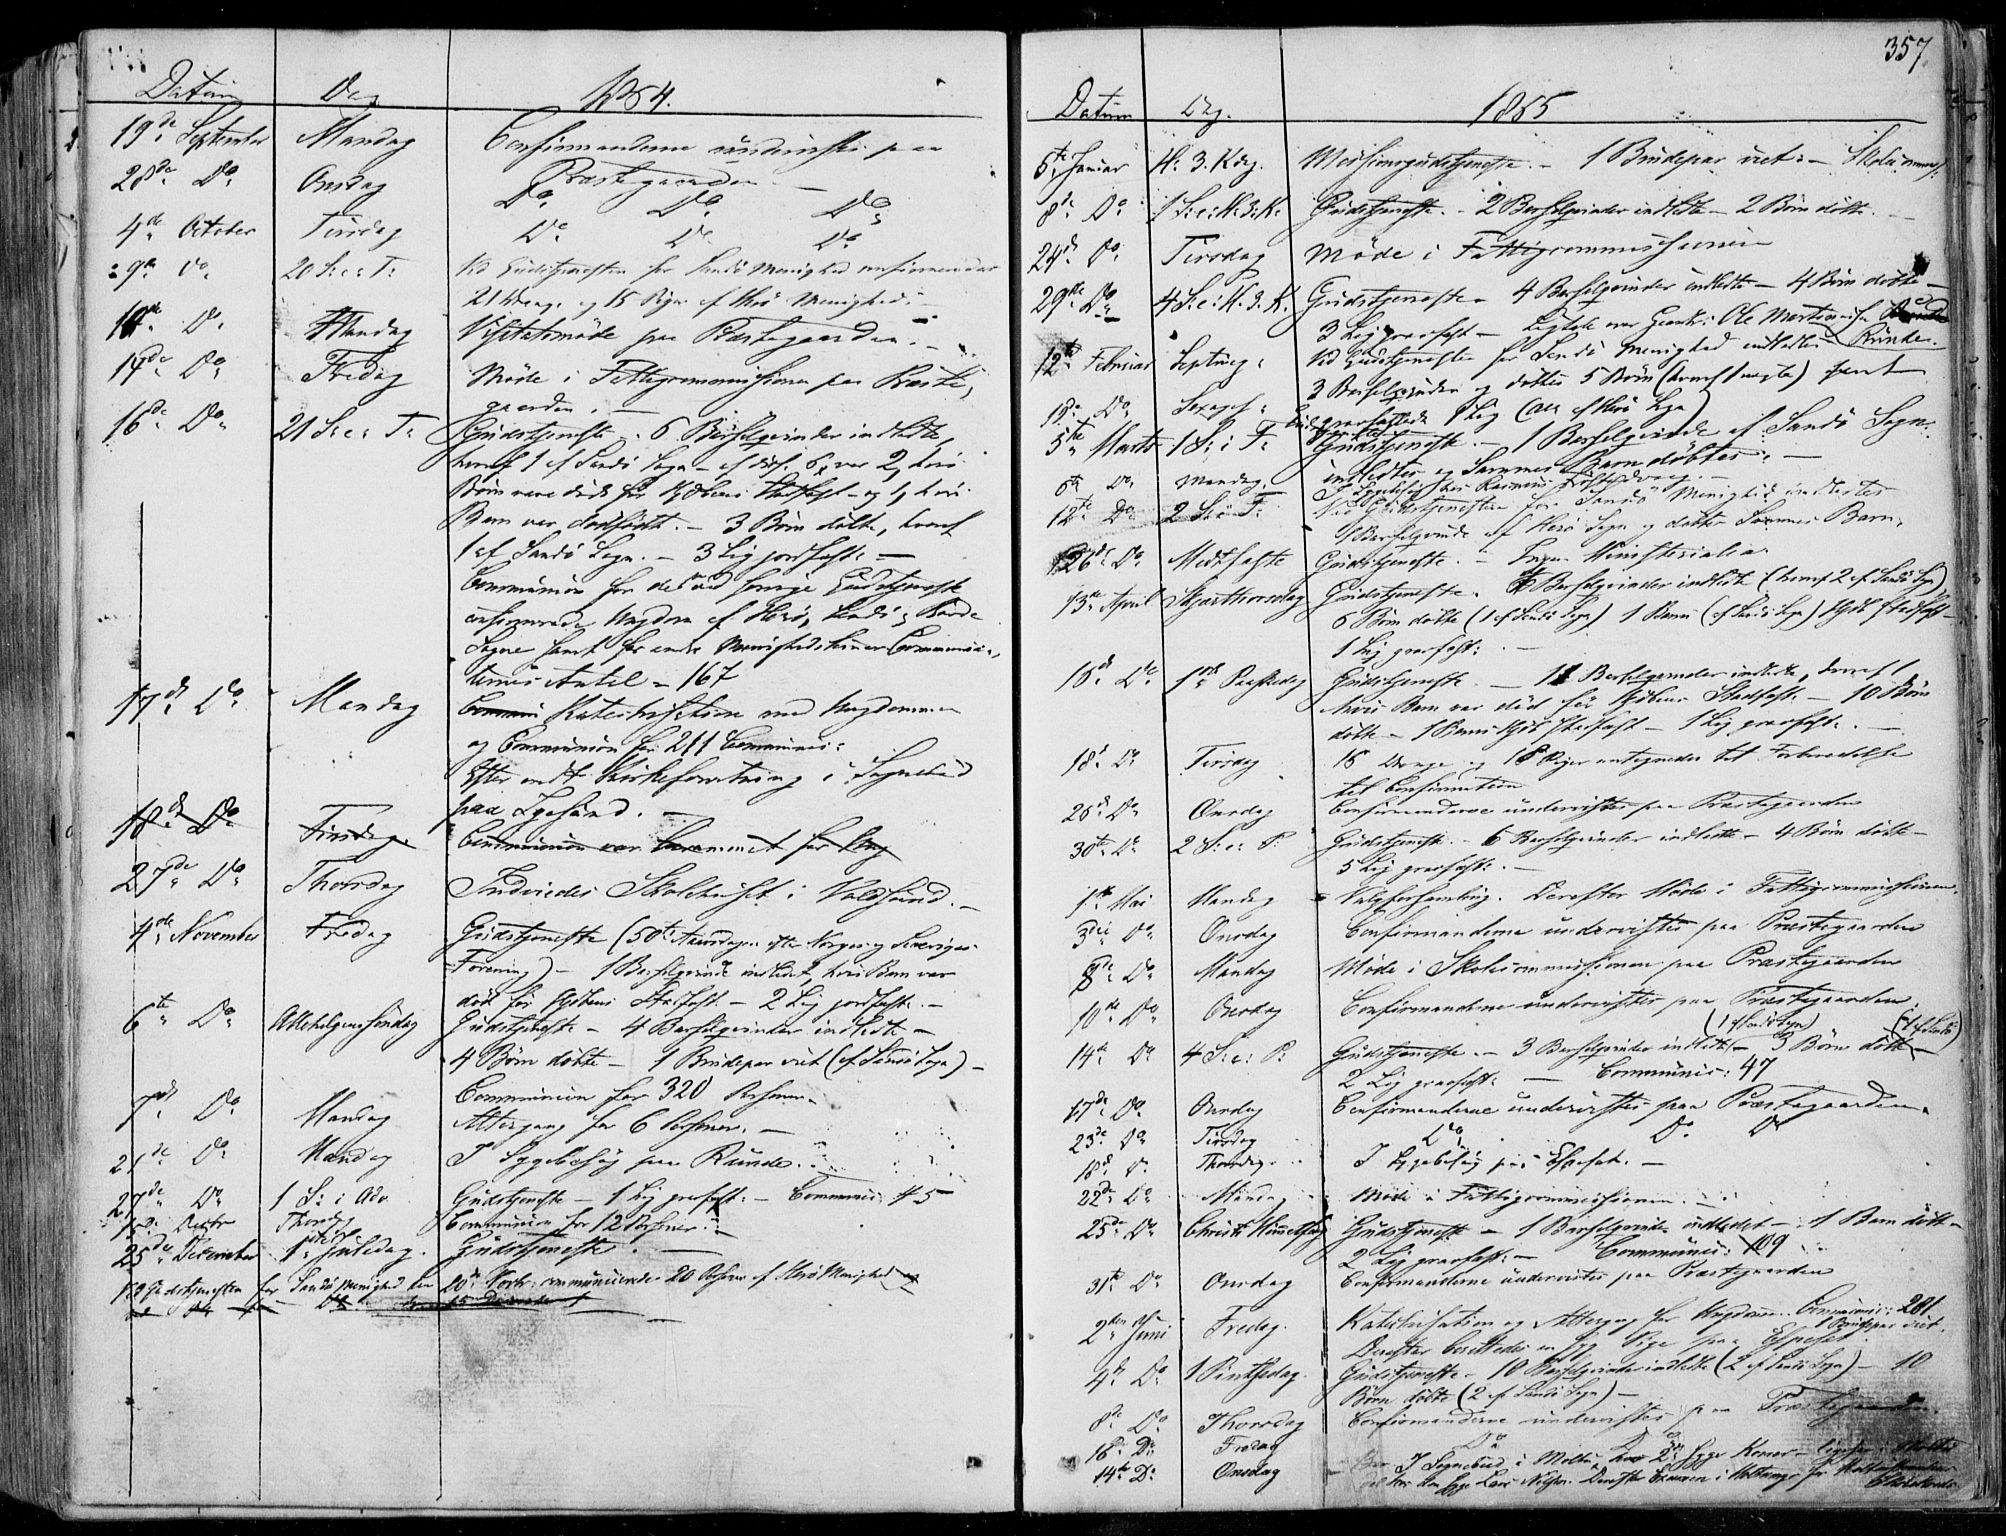 Datum Dag 1864.
19de September Mandag Confirmanderne undervist paa
Præstegaarden. —
28de Do Onsdag Do Do Do
4de October Tirsdag Do Do Do
9de Do 20 S. e. T. Ved Gudstjenesten for Sandö Menighed confirmeredes
21 Drenge og 15 Piger af Herö Menighed. —
10de Do Mandag Visitatsmöde paa Præstegaarden. —
14de Do Fredag Möde i Fattigcommissionen paa Præste-
gaarden. —
16de Do 21 S. e. T. Gudstjeneste. 6 Barselqvinder indledte,
hvoraf 1 af Sandö Sogn — af disse 6, var 2, hvis
Börn vare döde för Kirkens Stadfæst — og 1, hvis
Barn var dödfödt. — 3 Börn döbte, hvoraf
1 af Sandö Sogn. — 3 Lig jordfæst. —
Communion for de ved forrige Gudstjeneste
confirmerede Ungdom af Herö, Sandö,
Sogne samt for andre Menighedslemmer Communican-
ternes Antal = 167
17de Do Mandag Katechisation med Ungdommen
og Communion for 211 Communic:
Efter endt Kirkeforretning i Sognebud
paa Igesund. —
18de Do Tirsdag Communion var berammet for Dag
27de Do Thorsdag Indviedes Skolehuset i Voldsund. —
4de November Fredag Gudstjeneste (50de Aarsdagen efter Norges og Sveriges
Forening) — 1 Barselqvinde indledet, hvis Barn var
död för Kirkens Stadfæst. — 2 Lig jordfæst. —
6te Do Allehelgens söndag Gudstjeneste — 4 Barselqvinder indledte —
4 Börn döbte — 1 Brudepar viet (af Sandö Sogn) —
Communion for 320 Personer.
7de Do Mandag Altergang for 6 Personer. —
21de Do Mandag I Sygebesög paa Runde. —
27de Do 1 S. i Adv. Gudstjeneste — 1 Lig gravfæst: — Communic: 45
15de Decbr Thorsdag Communion for 12 Personer. —
25de December 1ste Juledag. Gudstjeneste. —
Ved Gudstjenesten for Sandö Menighed den 20de Novbr. communicerede 20 Personer af Herö Menighed
357
Datum Dag. 1865
6te Januar H. 3. K dag. Missionsgudstjeneste. — 1 Brudepar viet: — Skolecommis.
8de Do 1 S. e. H. 3. K. Gudstjeneste. — 2 Barselqvinder indledte — 2 Börn döbte. —
24de Do Tirsdag Möde i Fattigcommissionen
29de Do 4 S. e. H. 3. K. Gudstjeneste — 4 Barselqvinder indledte — 4 Börn döbte —
3 Lig gravfæst — Ligtale over Ole Martinus
Runde.
12te Februar Septuag: Ved Gudstjenesten for Sandö Menighed indledtes
3 Barselqvinder og döbtes 5 Börn (hvoraf 1 uægte) samt
gravfæstedes 1 Lig (alle af Herö Sogn)
19de Do Sexages: Gudstjeneste
5te Marts 1 S. i F. Gudstjeneste. — 1 Barselqvinde af Sandö Sogn
indledtes og Sammes Barn döbtes. —
6te Do Mandag. I Sygebesög hos Rasmus
12te Do 2 S. i F. Ved Gudstjenesten for Sandö Menighed indledtes
1 Barselqvinde af Herö Sogn og döbtes Sammes Barn.
26de Do Midfaste Gudstjeneste. — Ingen Ministerialia
13de April Skjærthorsdag Gudstjeneste. 6 Barselqvinder indledte (hvoraf 2 af Sandö Sogn)
6 Börn döbte (1 af Sandö Sogn) 1 Barn (af Sandö Sogn) Kirkens stadfæst —
1 Lig gravfæst: —
16de Do 1ste Paaskedag Gudstjeneste. — 11 Barselqvinder indledte, hvoraf 1
hvis Barn var död för Kirkens Stadfæst — 10 Börn
döbte — 1 Barns stadfæst — 1 Lig gravfæst. —
18de Do Tirsdag 16 Drenge og 16 Piger antegnedes til Forberedelse
til Confirmation
26de Do Onsdag Confirmanderne undervistes paa Præstegaarden
30te Do 2 S. e. P. Gudstjeneste. — 6 Barselqvinder indledte — 4 Börn döbte —
5 Lig gravfæst. —
1ste Mai Mandag Valgforsamling. Derefter Möde i Fattigcommissionen.
3die Do Onsdag Confirmanderne undervistes paa Præstegaarden
8de Do Mandag Möde i Skolecommissionen paa Præstegaarden
10de Do Onsdag Confirmanderne undervistes paa Præstegaarden.
(1 af Sandö Sogn) (1 af Sandö)
14de Do 4 S. e. P. Gudstjeneste. — 3 Barselqvinder indledte — 3 Börn döbte —
2 Lig gravfæst: — Communic: 47
17de Do Onsdag Confirmanderne undervistes paa Præstegaarden.
23de Do Tirsdag Do Do Do
18de Do Thorsdag. I Sygebesög paa Espeset. —
22de Do Mandag Möde i Fattigcommissionen. —
25de Do Christi Himmelfartsdag Gudstjeneste — 1 Barselqvinde indledet — 1 Barn döbt —
2 Lig gravfæst: — Communic: 109
31te Do Onsdag Confirmanderne undervistes paa Præstegaarden
2den Juni Fredag. Katechisation og Altergang for Ungdommen. Communic: 281
1 Brudepar viet.
Derefter berettedes en syg Pige paa Espeset
4de Do 1 Pintsedag. Gudstjeneste — 10 Barselqvinder indledte (2 af Sandö Sogn) — 10
Börn döbte (2 af Sandö Sogn) —
8de Do Thorsdag Confirmanderne undervistes paa Præstegaarden.
16de Do Fredag Do Do
14de Do Onsdag I Sognebud i Moltu, hos 2de syge Koner —
den syge Lars Nilsen. Derefter Examen i